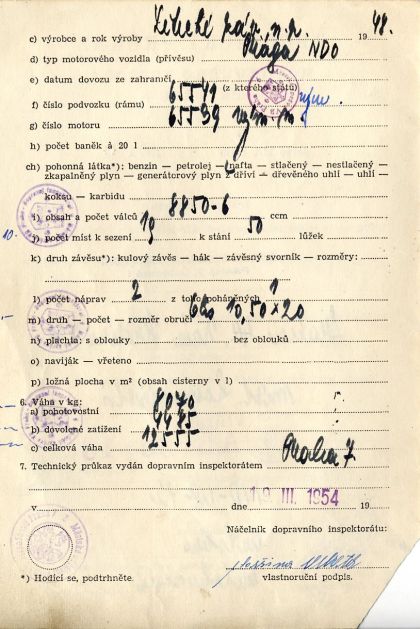 c) výrobce a rok výroby Libeňské záv. n. p. 1948.
d) typ motorového vozidla (přívěsu) Praga NDO
e) datum dovozu ze zahraničí
(z kterého státu)
f) číslo podvozku (rámu) 65541
g) číslo motoru 65539
h) počet baněk à 20 l
ch) pohonná látka*): benzin — petrolej — nafta — stlačený — nestlačený —
zkapalněný plyn — generátorový plyn — dříví — dřevěného uhlí — uhlí —
koksu — karbidu
i) obsah a počet válců 8850-6 ccm
j) počet míst k sezení 19 k stání 50 lůžek
k) druh závěsu*): kulový závěs — hák — závěsný svorník — rozměry:
l) počet náprav 2 z toho poháněných 1
m) druh — počet — rozměr obručí 6ks 10,50×20
n) plachta: s oblouky bez oblouků
o) naviják — vřeteno
p) ložná plocha v m² (obsah cisterny v l)
6. Váha v kg:
a) pohotovostní 8070
b) dovolené zatížení 4485
c) celková váha 12555
7. Technický průkaz vydán dopravním inspektorátem Praha 7
v dne 19. III. 1954 19
Náčelník dopravního inspektorátu:
*) Hodící se, podtrhněte.
vlastnoruční podpis.